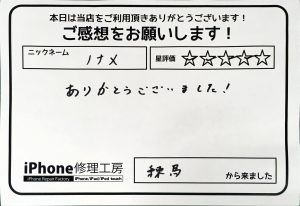 本日は当店をご利用頂きありがとうございます!
ご感想をお願いします!
ニックネーム ノナメ 星評価 ☆☆☆☆☆
ありがとうございました!
iPhone修理工房
iPhone Repair Factory iPhone/iPad/iPod touch
練馬 から来ました